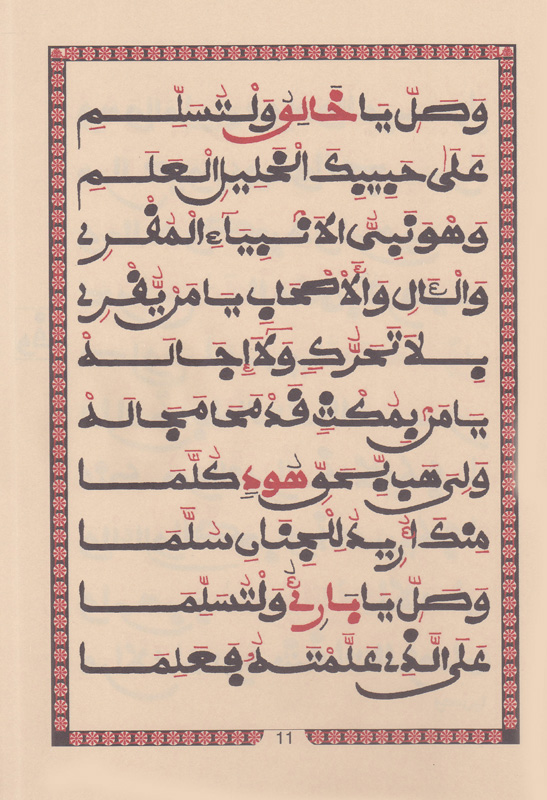 وَصَلِّ يَا خَالِقُ وَلْتُسَلِّمِ
عَلَى حَبِيبِكَ الْخَلِيلِ الْعَلَمِ
وَهْوَ نَبِيُّ الْأَنْبِيَآءِ الْمُقْرِي
وَالْـَٔالِ وَالْأَصْحَابِ يَا مَنْ يُّقْرِي
بِلَا تَحَرُّكٍ وَلَا إِجَالَهْ
يَا مَنْ بِمُكْثٍ قَدْ مَحَا مَجَالَهْ
وَلِي هَبْ بِّحَقِّ هُودٍ كُلَّمَا
مِنْكَ أُرِيدُ لِلْجِنَانِ سُلَّمَا
وَصَلِّ يَا بَارِئُ وَلْتُسَلِّمَا
عَلَى الَّذِي عَلَّمْتَهُ فَعَلِمَا
11